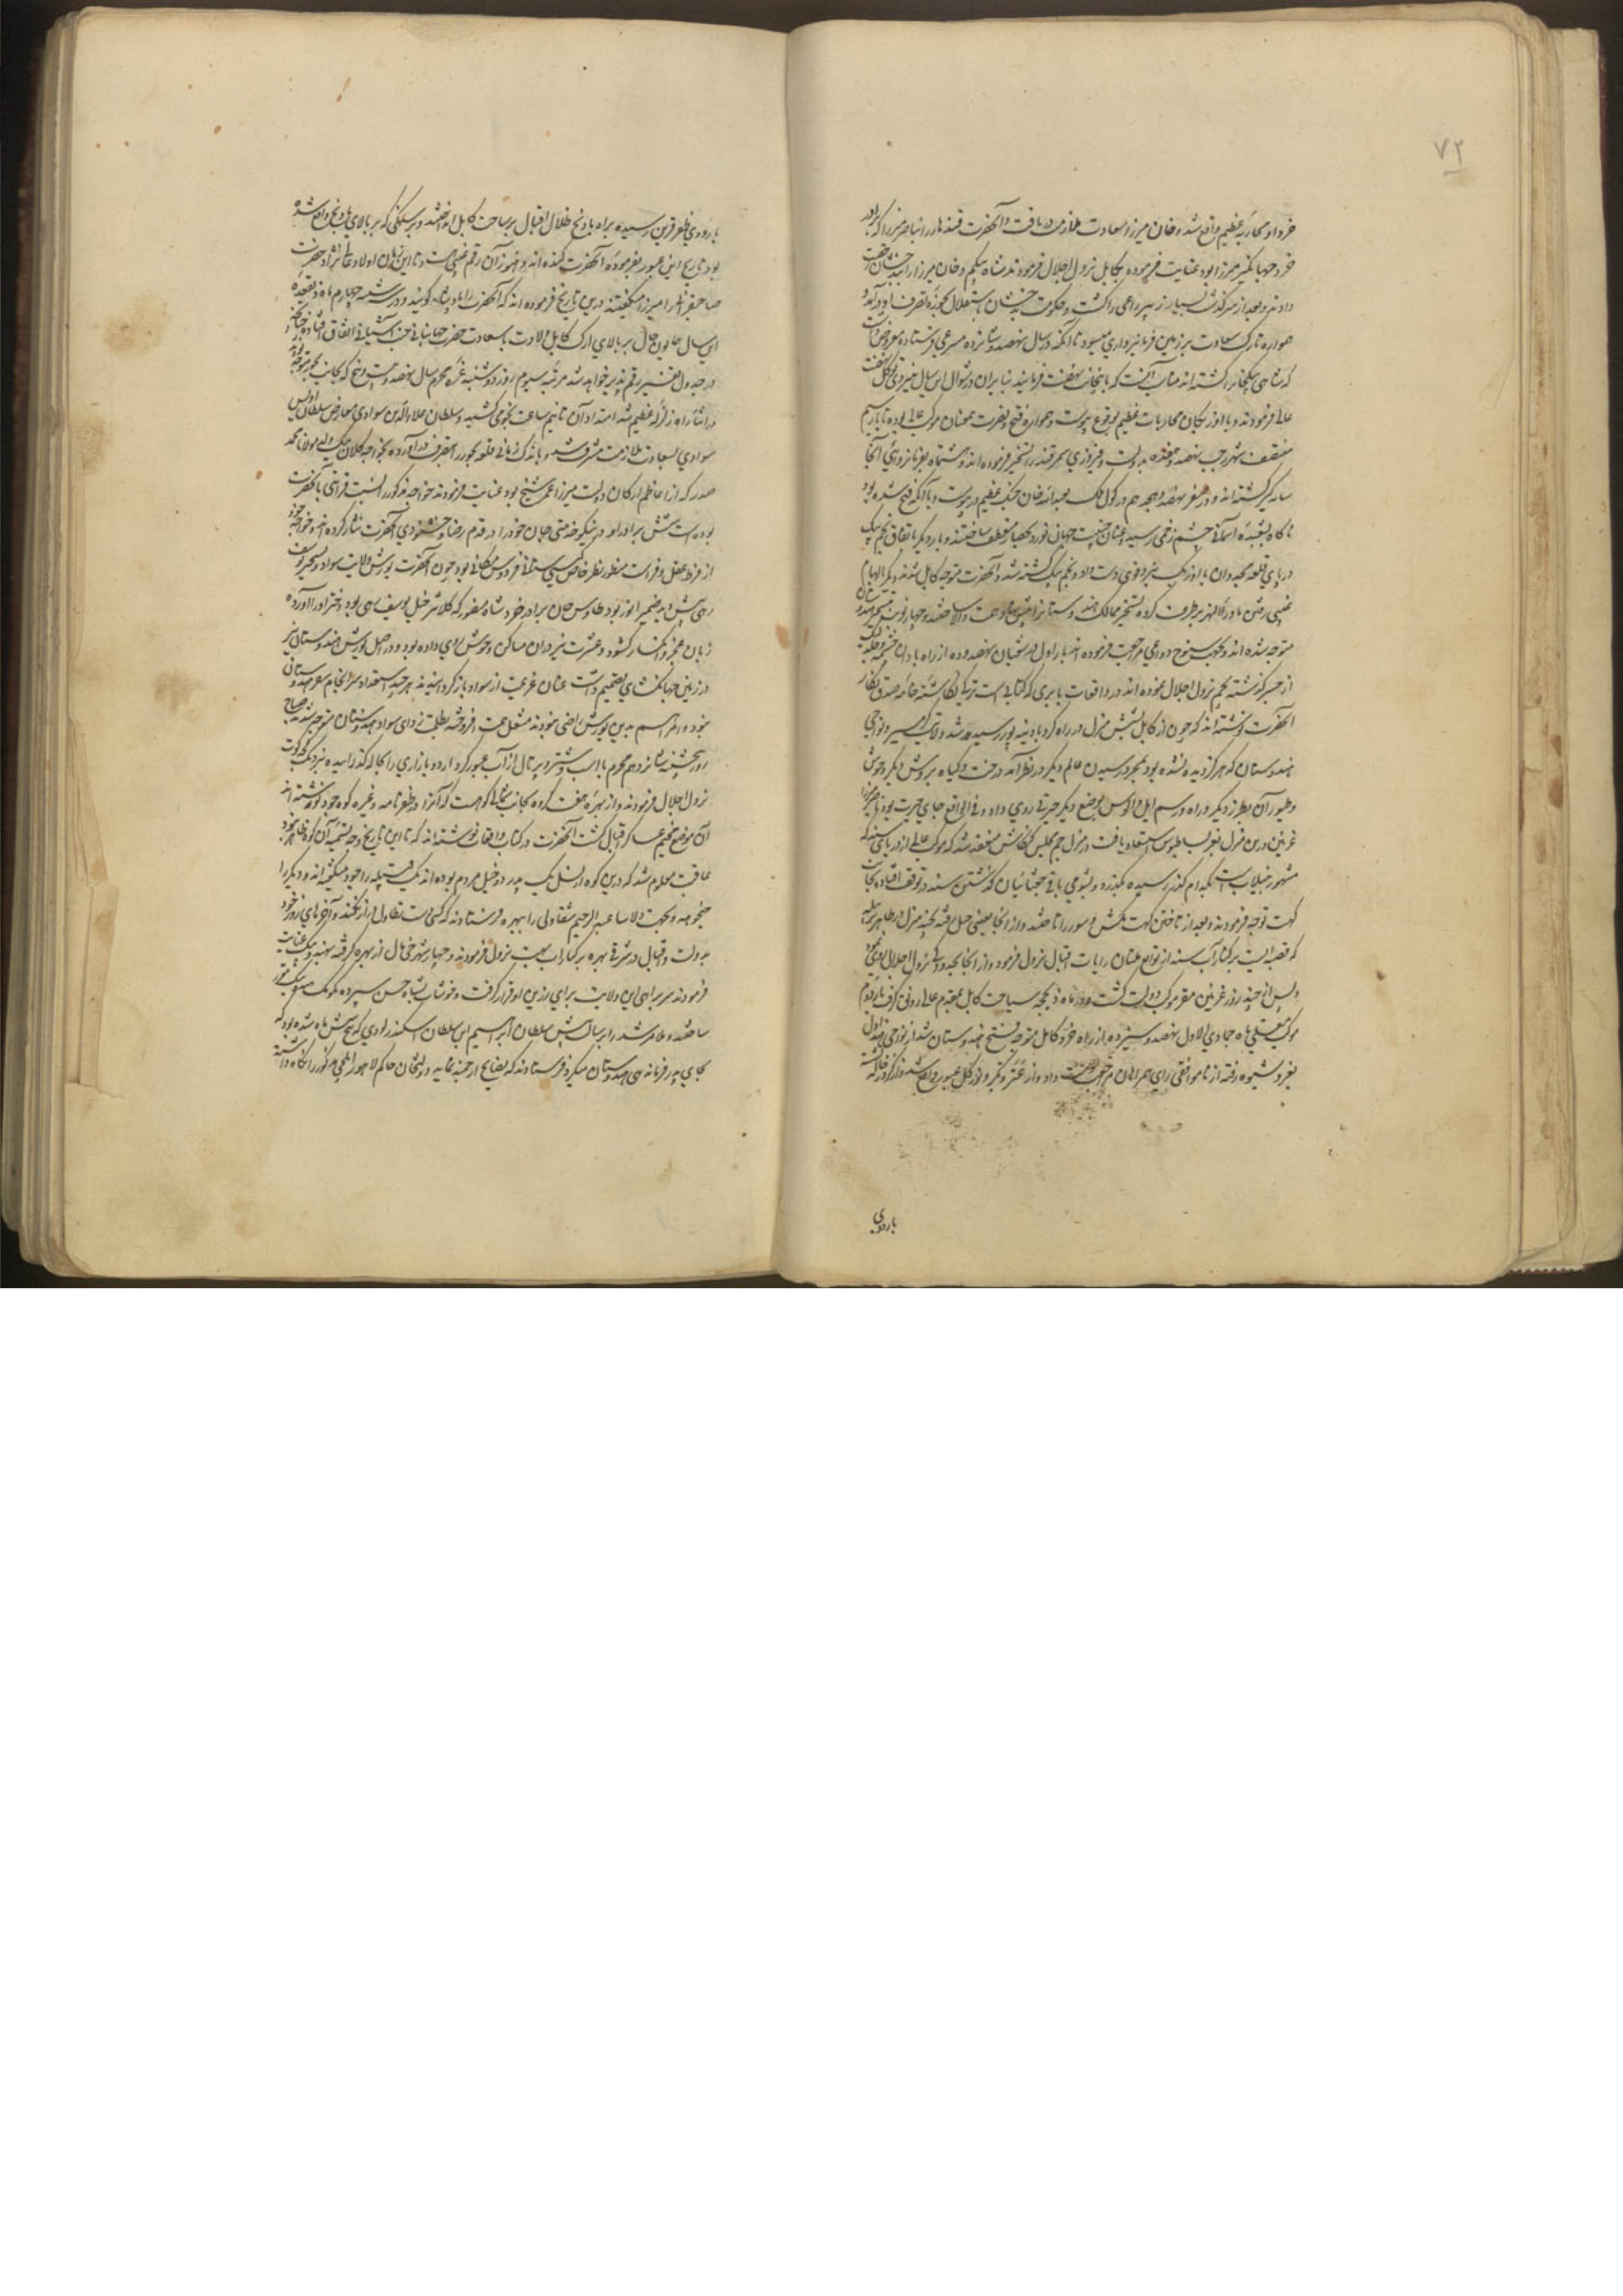 ۷۲
خرد او محاربه عظیم واقع شد و خان میرزا سعادت ملازمت دریافت و آنحضرت قندهار را بناصر میرزا که برادر
خرد جهانگیر میرزا بود عنایت فرموده بکابل نزول اجلال فرمودند شاه بیکم و خان میرزا را بدخشان رخصت
دادند و بعد از سرگذشت بسیار زبیر راعی را کشت و حکومت بدخشان باستقلال بحوزه تصرف او درآمد و
همواره تارک سعادت بر زمین فرمانبرداری میسود تا آنکه در سال نهصد و شانزده مسرعی فرستاده معروض داشت
که شاهی بیکخان کشته اند مناسب آنست که باینجانب نهضت فرمایند بنابران در شوال این سال بنیروی توکل نهضت
عالی فرمودند و با اوزبکان محاربات عظیم بوقوع پیوست و همواره فتح و نصرت همعنان موکب عالی بوده تا بار سیم
منتصف شهر رجب نهصد و هفده بدولت و فیروزی سمرقند را تسخیر فرموده اند و هشتماه بفرمانروائی آنجا
سایه گستر گشته اند و در صفر نهصد و هجده هم در کول ملک بعبدالله خان جنگ عظیم در پیوست و با آنکه فتح شده بود
ناگاه بشعبده آسمانی چشم زخمی رسید و عنان خنگ جهان نورد بحصار منعطف ساختند و بار دیگر باتفاق نجم بیک
در پای قلعه غجدوان با اوزبک نبرد قوی دست داد و نجم بیک کشته شد و آنحضرت متوجه کابل شدند دیگر بالهام
غیبی رفتن ماوراء النهر برطرف کرده تسخیر ممالک هندوستان را پیش نهاد همت والا ساختند و چهار نوبت بتسخیر هندوستان
متوجه شده اند و بحسب سنوح دواعی مراجعت فرموده اند بار اول در شعبان نهصد و ده از راه بادام چشمه و جگدلیک
از خیبر گذشته بجم نزول اجلال نموده اند در واقعات بابری که کتابی است ترکی نگاشته خامه صدق نگار
آنحضرت نوشته اند که چون از کابل بشش منزل در راه گرد بادینه پور رسیده شد ولایت گرمسیر و نواحی
هندوستان که هرگز دیده نشده بود بمجرد رسیدن عالم دیگر در نظر آمد درخت و گیاه بروش دیگر وحوش
و طیور آن بطرز دیگر و راه و رسم ایل و الوس بوضع دیگر حیرتی روی داد و فی الواقع جای حیرت بود ناصر میرزا
غزنین درین منزل بتقبیل بساط بوس استسعاد یافت در منزل جم مجلس کنکاش منعقد شد که موکب عالی از دریای سند که
مشهور بنیلاب است بکدام گذر رسیده بگذرد و بشومی باقی چغانیان گذشتن سند در توقف افتاده بجانب
کهت توجه فرمودند و بعد از تاختن کهت بنگش و سور را تاختند و از آنجا بعیسی خیل رفته بچند منزل در ظاهر تربیله
که قصبه ایست بر کنار آب سند از توابع ملتان رایات اقبال نزول فرمود و از آنجا بحدود دکی نزول اجلال واقع شد
و پس از چند روز غزنین مقر موکب دولت گشت و در ماه ذیحجه سیاحت کابل بمقدم عالی رونق گرفت بار دوم
موکب معلی ماه جمادی الاول نهصد و سیزده باز از راه خرد کابل متوجه تسخیر هندوستان شد از نواحی مندراول
بغر و شیوه رفته از ناموافقی رای همراهان مراجعت دست داد و از عتر و نکر و نورگل عبور واقع شد و از کنر در جاله نشسته
باردوی
باردوی ظفر قرین رسیده براه بادنج ظلال اقبال بر ساحت کابل انداختند و بر سنگی که بر بالای بادنج واقع شده
بود تاریخ این عبور بفرموده آنحضرت کنده اند و هنوز آن رقم غیبی هست و تا این زمان اولاد عالی نژاد حضرت
صاحبقرانی را میرزا میگفتند درین تاریخ فرموده اند که آنحضرت را بادشاه گویند و در سه شنبه چهارم ماه ذیقعده
این سال همایون فال بر بالای ارک کابل ولادت باسعادت حضرت جهانبانی جنت آشیانی اتفاق افتاد چنانچه
در جدول تقریر رقم پذیر خواهد شد مرتبه سیوم روز دوشنبه غره محرم سال نهصد و بیست و پنج که بجانب بجور متوجه بودند
در اثنای راه زلزله عظیم شد امتداد آن تا نیم ساعت نجومی کشید و سلطان علاء الدین سوادی معارض سلطان اویس
سوادی بسعادت ملازمت مشرف شد و باندک زمانی قلعه بجور را بتصرف درآورده بخواجه کلان بیک ولد مولانا محمد
صدر که از اعاظم ارکان دولت میرزا عمر شیخ بود عنایت فرمودند خواجه مذکور را نسبت قرابتی با آنحضرت
بوده است شش برادر او در نیکو خدمتی جان خود را در قدم رضا و خشنودی آنحضرت نثار کرده اند و خواجه خود
از فرط عقل و فراست منظور نظر خاص گیتی ستانی فردوس مکانی بود چون آنحضرت یورش ولایت سواد و تسخیر یوسف
زهی پیش نهاد ضمیر انور بود طاوس خان برادر خرد شاه منصور که کلانتر خیل یوسف زهی بود دختر او را آورده
زبان عجز و انکسار گشود و عشرت نیز دران مساکن وحوش روی داده بود و در اصل یورش هندوستان نیز
در زمین جهانگشای تصمیم داشت عنان عزیمت از سواد باز گردانیدند هر چند استعداد و سرانجام سفر هندوستان
نبود و امرا هم بدین یورش راضی نبودند مشعل همت افروخته بظلمت زدای سواد هندوستان متوجه شدند صباح
روز پنجشنبه شانزدهم محرم با اسب و شتر و پرتال از آب عبور کرد اردو بازاری را بجاله گذرانیده نزدیک کچه کوت
نزول اجلال فرمودند و از بهره هفت کروه بجانب شمالی کوهیست که آنرا در ظفرنامه و غیره کوه جود نوشته اند
آن موضع مخیم عساکر اقبال گشت آنحضرت در کتاب واقعات نوشته اند که تا این تاریخ وجه تسمیه آن کوه ظاهر نبود
عاقبت معلوم شد که درین کوه از نسل یک پدر دو خیل مردم بوده اند یک قبیله را جود میگفته اند و دیگر را
جنجوهه و بجهت دلاسا عبدالرحیم شقاول را ببهره فرستادند که کسی دست تطاول دراز نکند و آخرهای روز خود
بدولت و اقبال در شرق بهره بر کنار آب بهت نزول فرمودند و چهار شهرخی مال از بهره گرفته بهندو بیک عنایت
فرمودند سربراهی این ولایت برای رزین او قرار گرفت و خوشاب بشاه حسن سپرده بکومک هندو بیک مقرر
ساختند و ملا مرشد را برسالت پیش سلطان ابراهیم ابن سلطان اسکندر لودی که پنج شش ماه شده بود که
بجای پدر فرماندهی هندوستان میکرد فرستادند که بنصایح ارجمند نماید دولتخان حاکم لاهور ایلچی مذکور را نگاه داشته